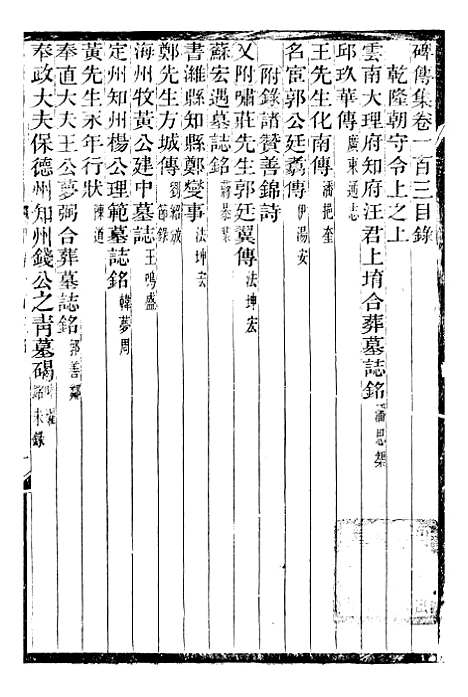 碑傳集卷一百三目錄
乾隆朝守令上之上
雲南大理府知府汪君上堉合葬墓誌銘 潘思榘
邱玖華傳 廣東通志
王先生化南傳 潘挹奎
名宦郭公廷翥傳 伊湯安
附錄諸贊善錦詩
又附嘯莊先生郭廷翼傳 法坤宏
蘇宏遇墓誌銘
書濰縣知縣鄭燮事 法坤宏
鄭先生方城傳 劉紹攽 節錄
海州牧黃公建中墓誌 王鳴盛
定州知州楊公理範墓誌銘 韓夢周
黃先生永年行狀 陳道
奉直大夫王公夢弼合葬墓誌銘 鄭善
奉政大夫保德州知州錢公之青墓碣 銘未錄